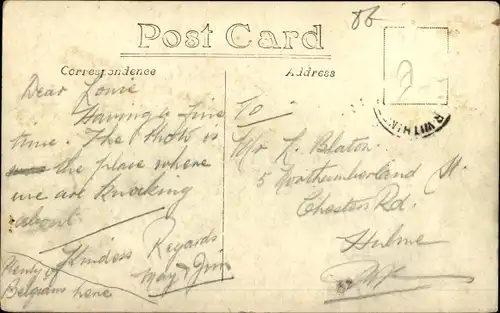 86
Post Card
Correspondence
Address
Dear Louie
Having a fine
time. The Photo is
the place where
we are knocking
about.
Kindess Regards
May & Jim
Plenty of
Belgians here
To
Mr L. Blaton
5 Northumberland St.
Chester Rd.
Hulme